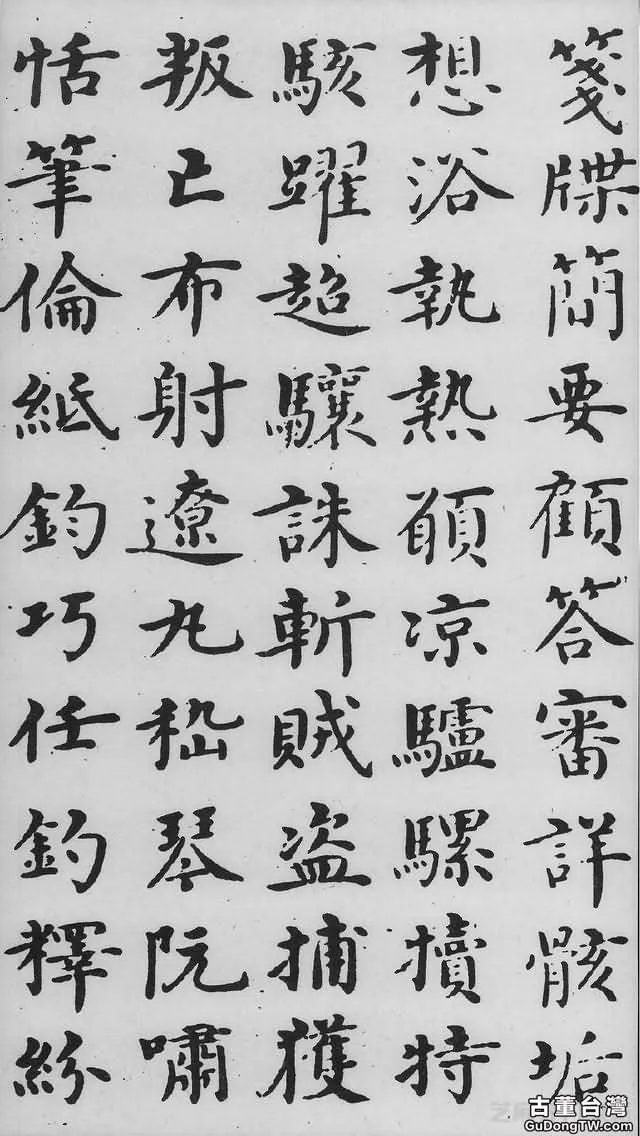 箋牒簡要顧答審詳骸垢
想浴執熱願凉驢騾犢特
駭躍超驤誅斬賊盜捕獲
叛亡布射遼丸嵇琴阮嘯
恬筆倫紙鈞巧任釣釋紛
古董台灣
GuDongTW.com